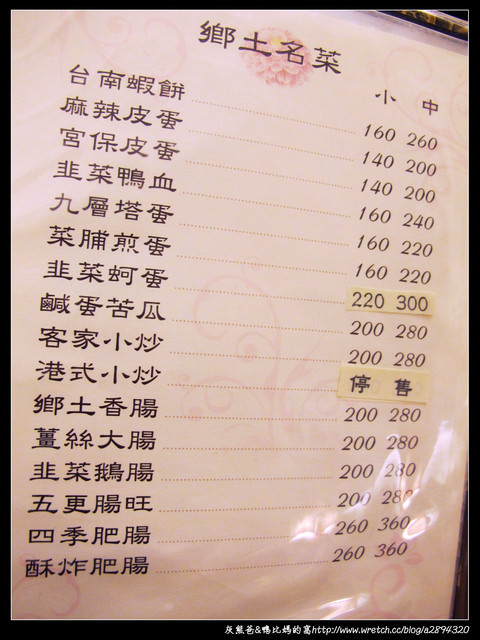 鄉土名菜
小 中
台南蝦餅 160 260
麻辣皮蛋 140 200
宮保皮蛋 140 200
韭菜鴨血 160 240
九層塔蛋 160 220
菜脯煎蛋 160 220
韭菜蚵蛋 220 300
鹹蛋苦瓜 200 280
客家小炒 200 280
港式小炒 停售
鄉土香腸 200 280
薑絲大腸 200 280
韭菜鵝腸 200 280
五更腸旺 200 280
四季肥腸 260 360
酥炸肥腸 260 360
灰熊爸&鴨比媽的窩http://www.wretch.cc/blog/a2894320